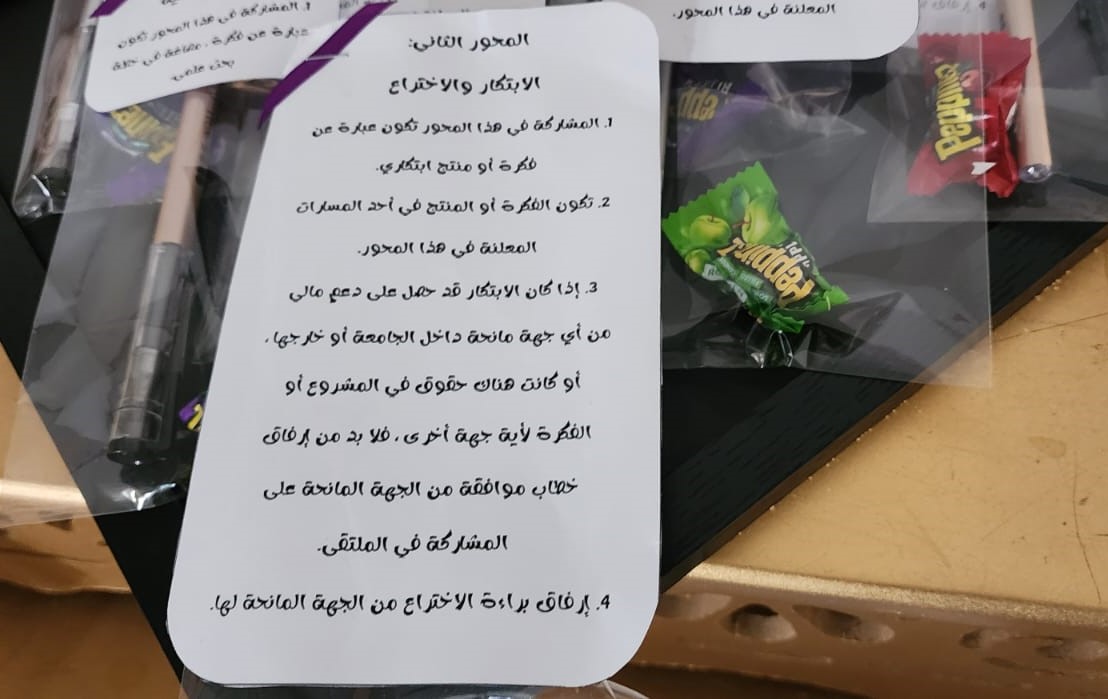 المحور الثاني:
الابتكار والاختراع
1. المشاركة في هذا المحور تكون عبارة عن
فكرة أو منتج ابتكاري.
2. تكون الفكرة أو المنتج في أحد المسارات
المعلنة في هذا المحور.
3. إذا كان الابتكار قد حصل على دعم مالي
من أي جهة مانحة داخل الجامعة أو خارجها،
أو كانت هناك حقوق في المشروع أو
الفكرة لأية جهة أخرى، فلا بد من إرفاق
خطاب موافقة من الجهة المانحة على
المشاركة في الملتقى.
4. إرفاق براءة الاختراع من الجهة المانحة لها.
1. المشاركة في هذا المحور تكون
عبارة عن فكرة
بحث علمي
المعلنة في هذا المحور.